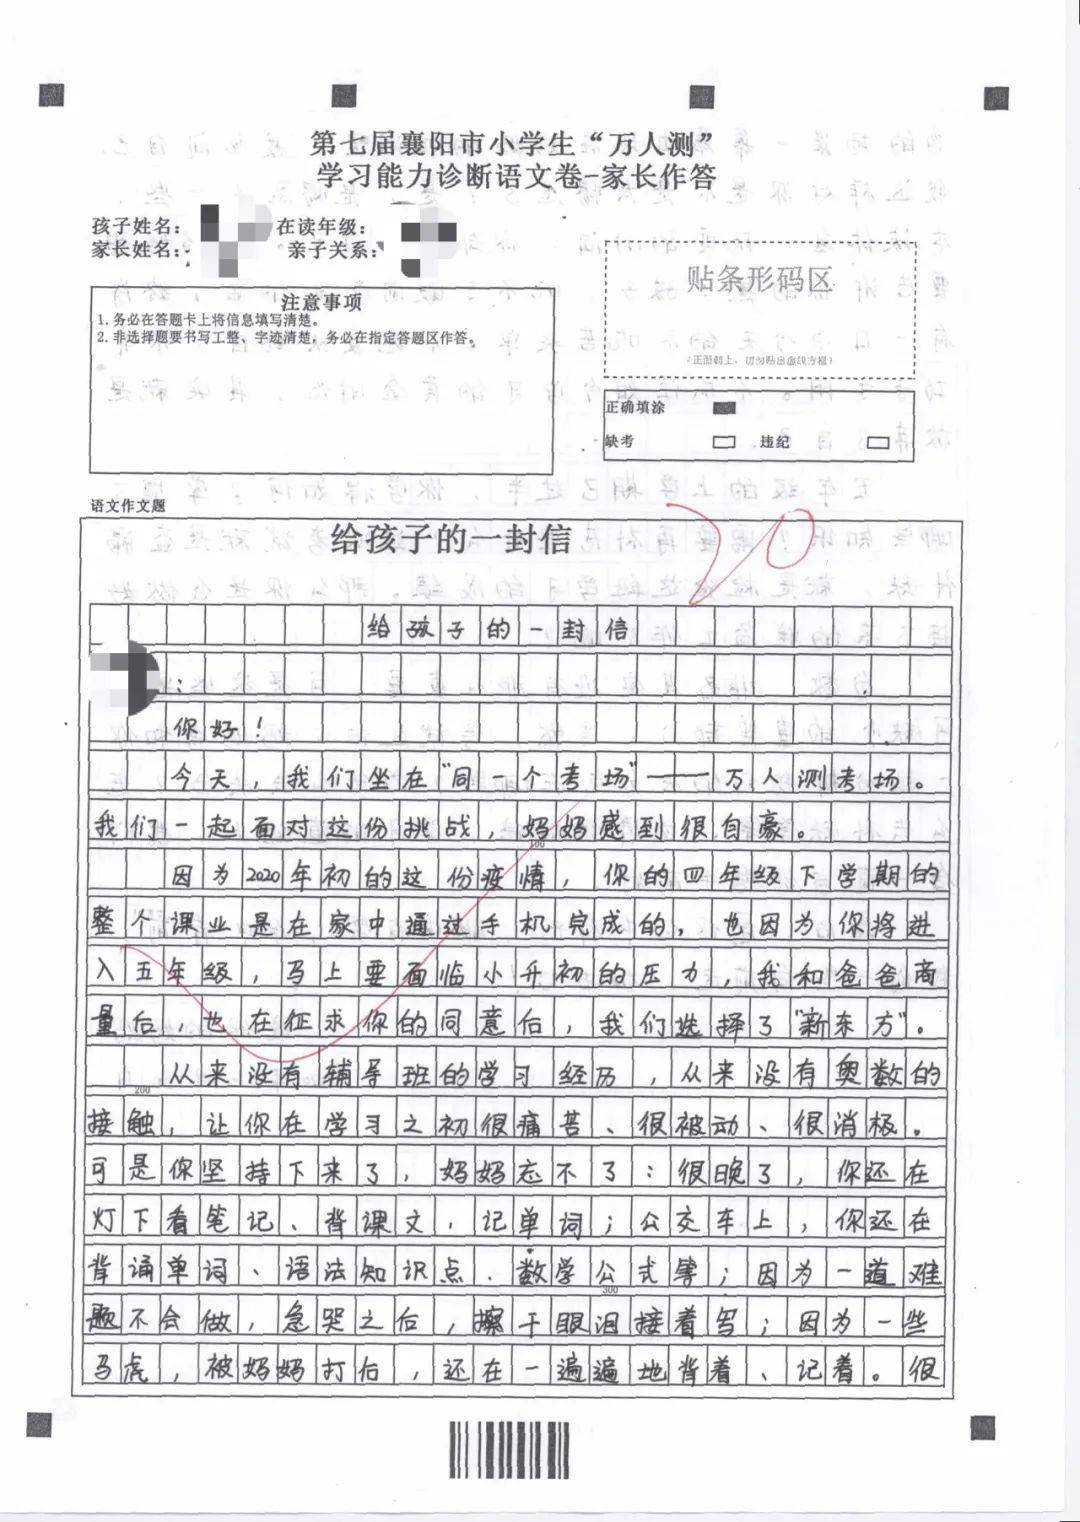 第七届襄阳市小学生“万人测”
学习能力诊断语文卷-家长作答
孩子姓名： 在读年级：
家长姓名： 亲子关系：
贴条形码区
（正面朝上，切勿贴出虚线方框）
注意事项
1. 务必在答题卡上将信息填写清楚。
2. 非选择题要书写工整、字迹清楚，务必在指定答题区作答。
正确填涂
缺考 违纪
语文作文题
20
给孩子的一封信
给孩子的一封信
：
你好！
今天，我们坐在“同一个考场”——万人测考场。
我们一起面对这份挑战，妈妈感到很自豪。
100
因为2020年初的这份疫情，你的四年级下学期的
整个课业是在家中通过手机完成的，也因为你将进
入五年级，马上要面临小升初的压力，我和爸爸商
量后，也在征求你的同意后，我们选择了“新东方”。
从来没有辅导班的学习经历，从来没有奥数的
200
接触，让你在学习之初很痛苦、很被动、很消极。
可是你坚持下来了，妈妈忘不了：很晚了，你还在
灯下看笔记、背课文，记单词；公交车上，你还在
背诵单词、语法知识点、数学公式等；因为一道难
300
题不会做，急哭之后，擦干眼泪接着写；因为一些
马虎，被妈妈打后，还在一遍遍地背着、记着。很